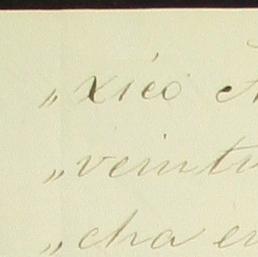 „xico
„veintu
„cha en